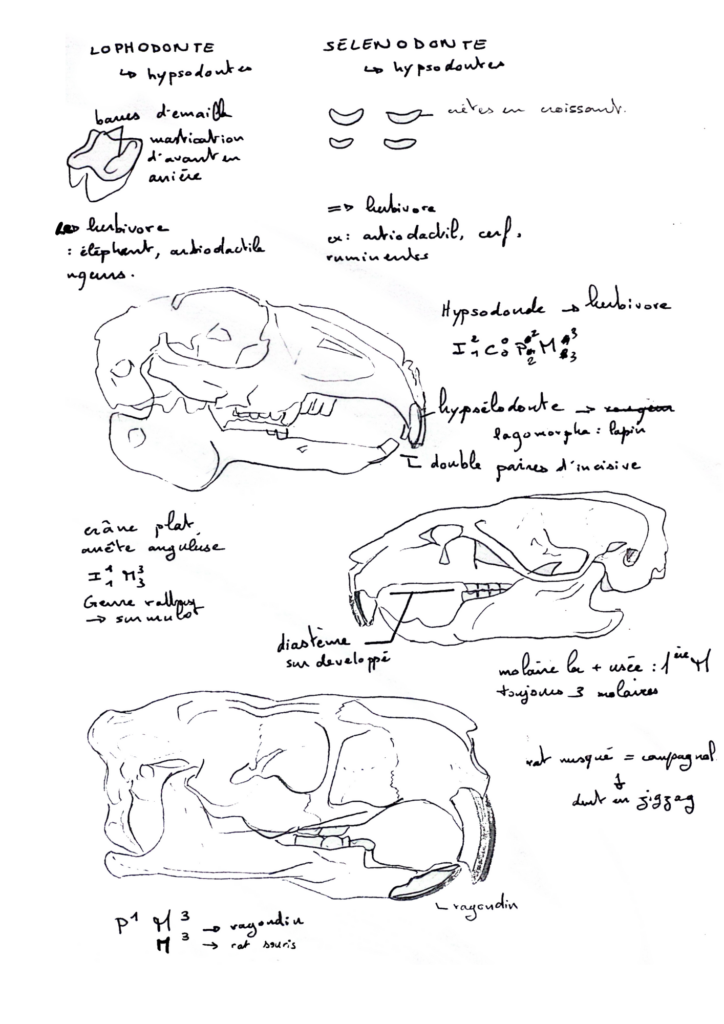 LOPHODONTE
↳ hypsodontes
barres d'émail
mastication
d'avant en
arrière
herbivore
: éléphant, artiodactile
SÉLÉNODONTE
↳ hypsodontes
crêtes en croissant.
=> herbivore
ex: artiodactil, cerf,
ruminentes
Hypsodonde → herbivore
hypsélodonte →
lagomorpha : lapin
double paires d'incisive
crâne plat,
arrête anguluse
I 1/1 M 3/3
Genre
→ surmulot
diastème
sur developpé
molaire la + usée : 1ère M
toujours 3 molaires
rat musqué = campagnol
↓
dent en zigzag
ragondin
P1 M3 → ragondin
M3 → rat souris